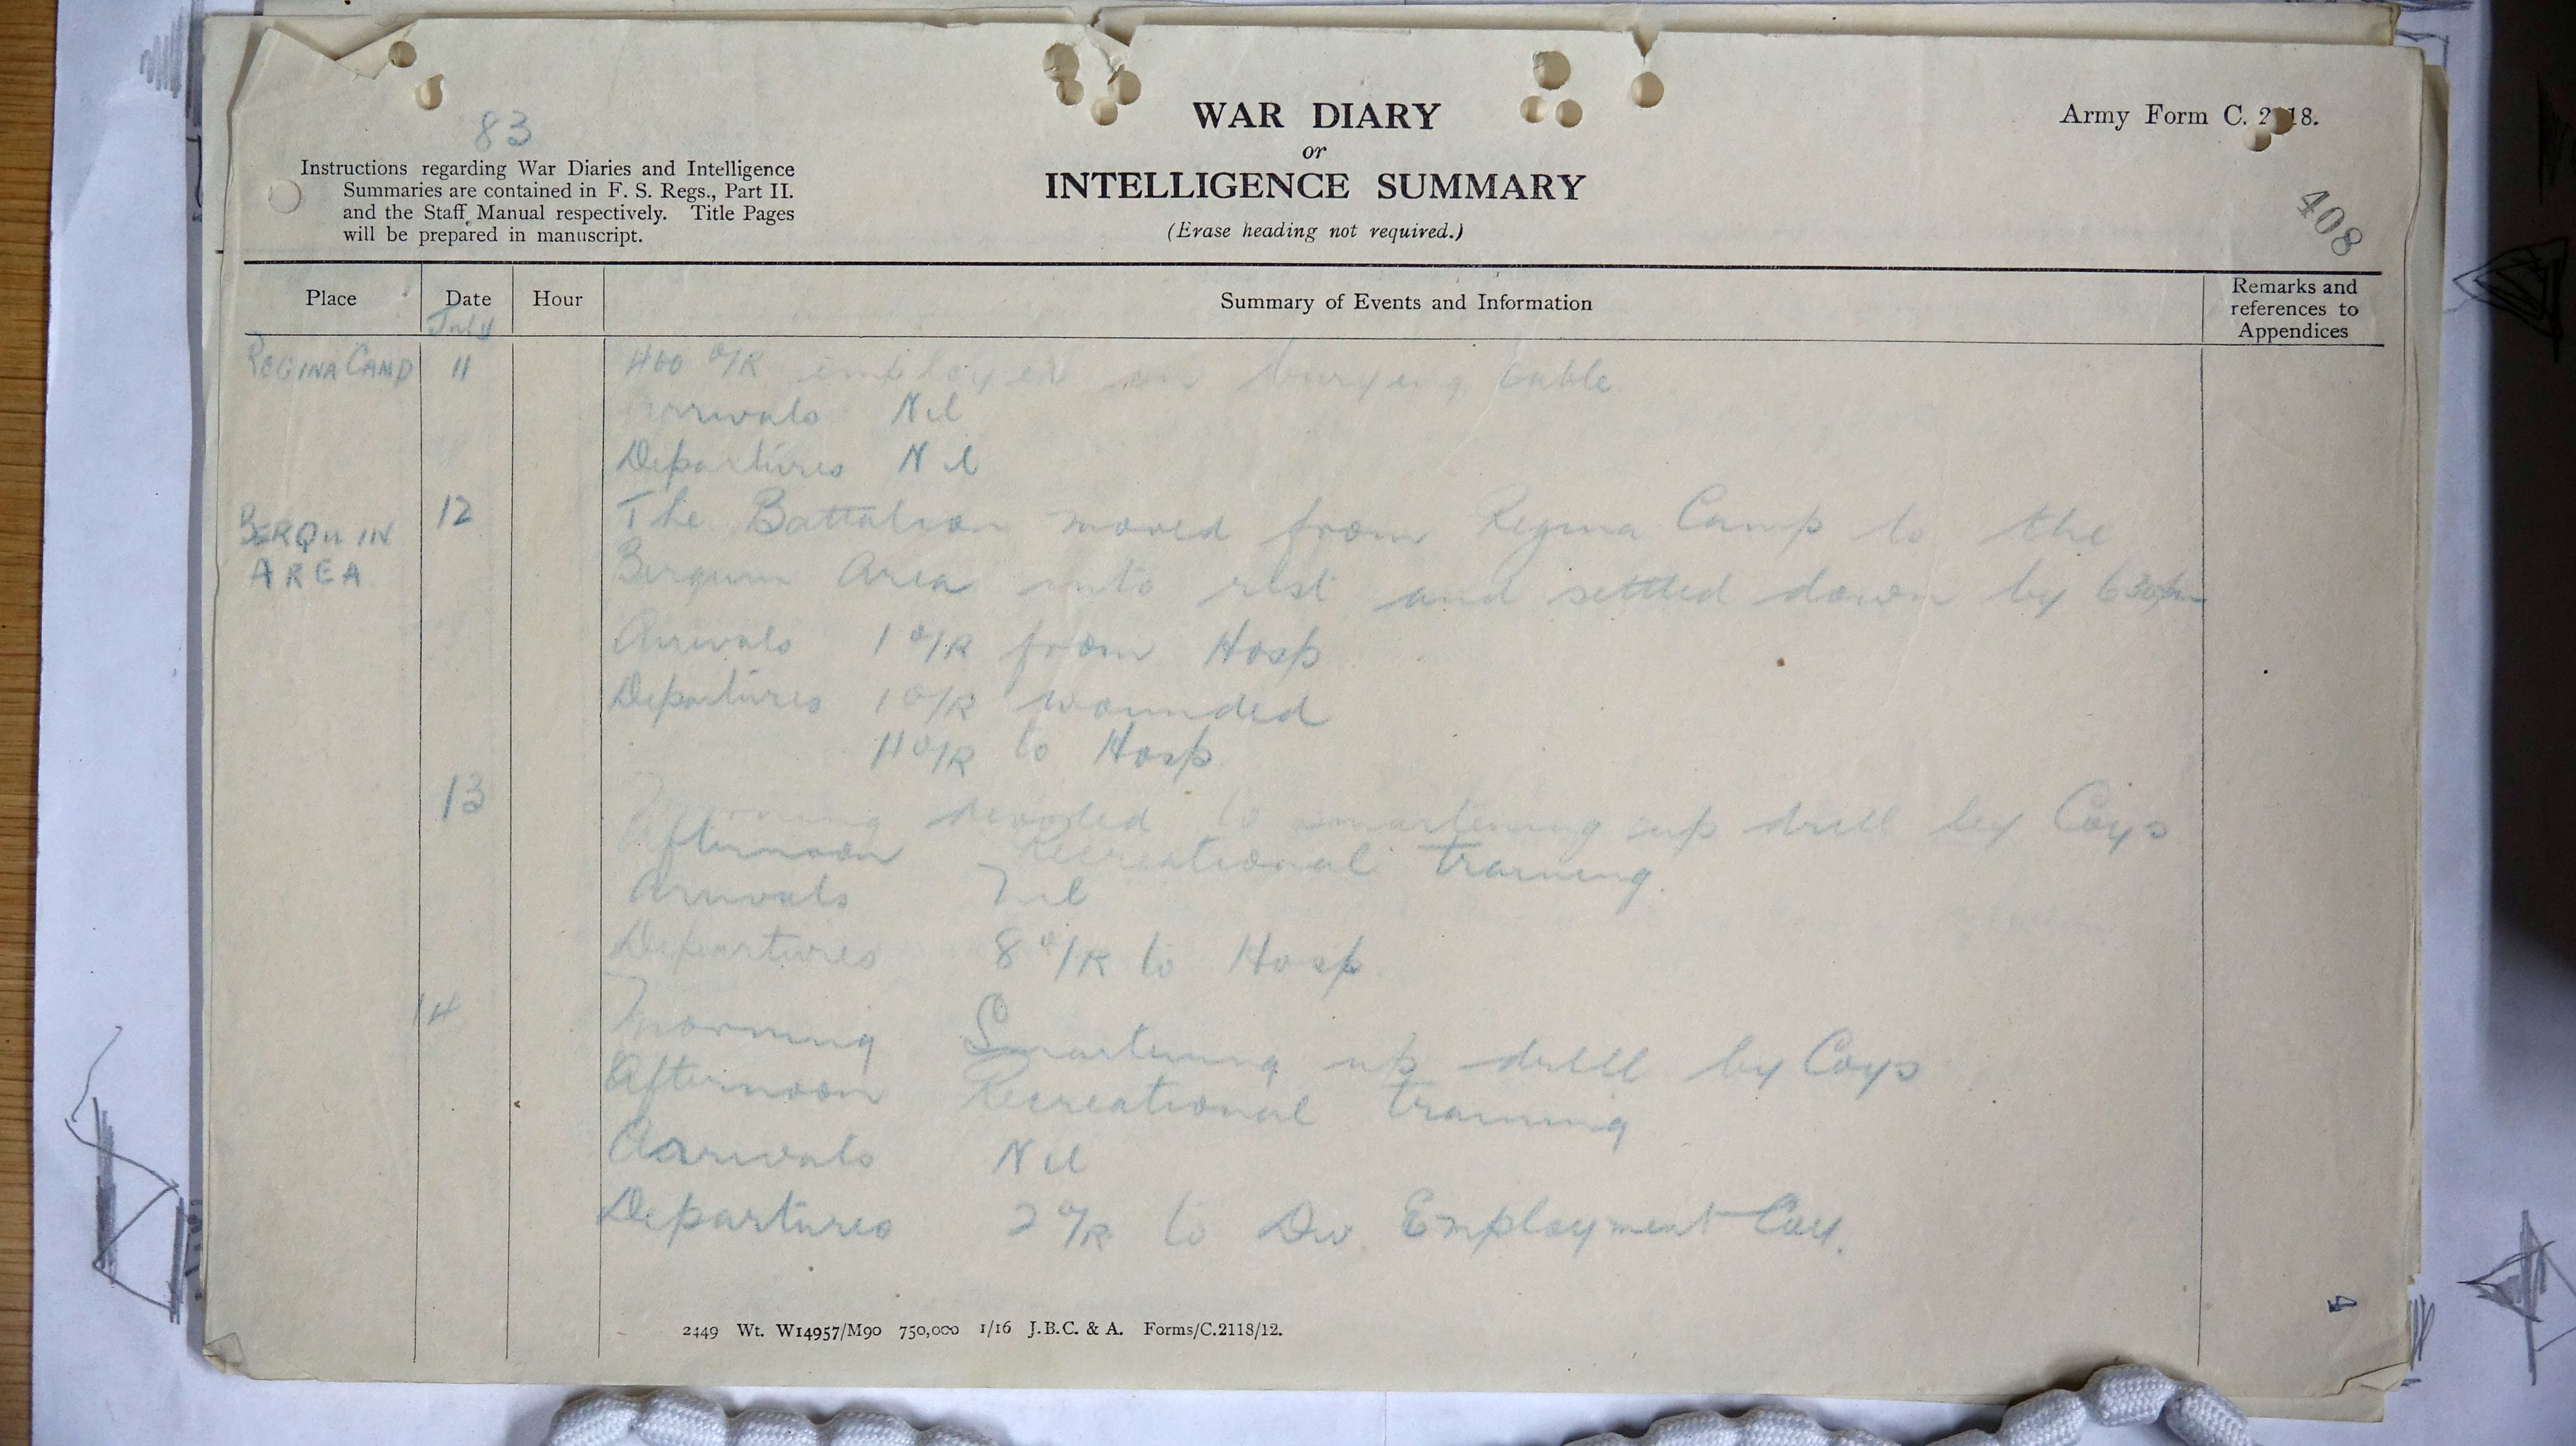 83
WAR DIARY
or
INTELLIGENCE SUMMARY
(Erase heading not required.)
Army Form C. 2118.
408
Instructions regarding War Diaries and Intelligence
Summaries are contained in F. S. Regs., Part II.
and the Staff Manual respectively. Title Pages
will be prepared in manuscript.
Place Date Hour Summary of Events and Information Remarks and references to Appendices
July
REGINA CAMP 11 400 O/R employed on burying cable
Arrivals Nil
Departures Nil
BERQUIN AREA 12 The Battalion moved from Regina Camp to the
Berquin Area into rest and settled down by 6 30pm
Arrivals 1 O/R from Hosp
Departures 1 O/R wounded
11 O/R to Hosp
13 Morning devoted to smartening up drill by Coys
Afternoon Recreational training.
Arrivals Nil
Departures 8 O/R to Hosp
14 Morning Smartening up drill by Coys
Afternoon Recreational training
Aarrivals Nil
Departures 2 O/R to Div. Employment Coy.
2449 Wt. W14957/M90 750,000 1/16 J.B.C. & A. Forms/C.2118/12.